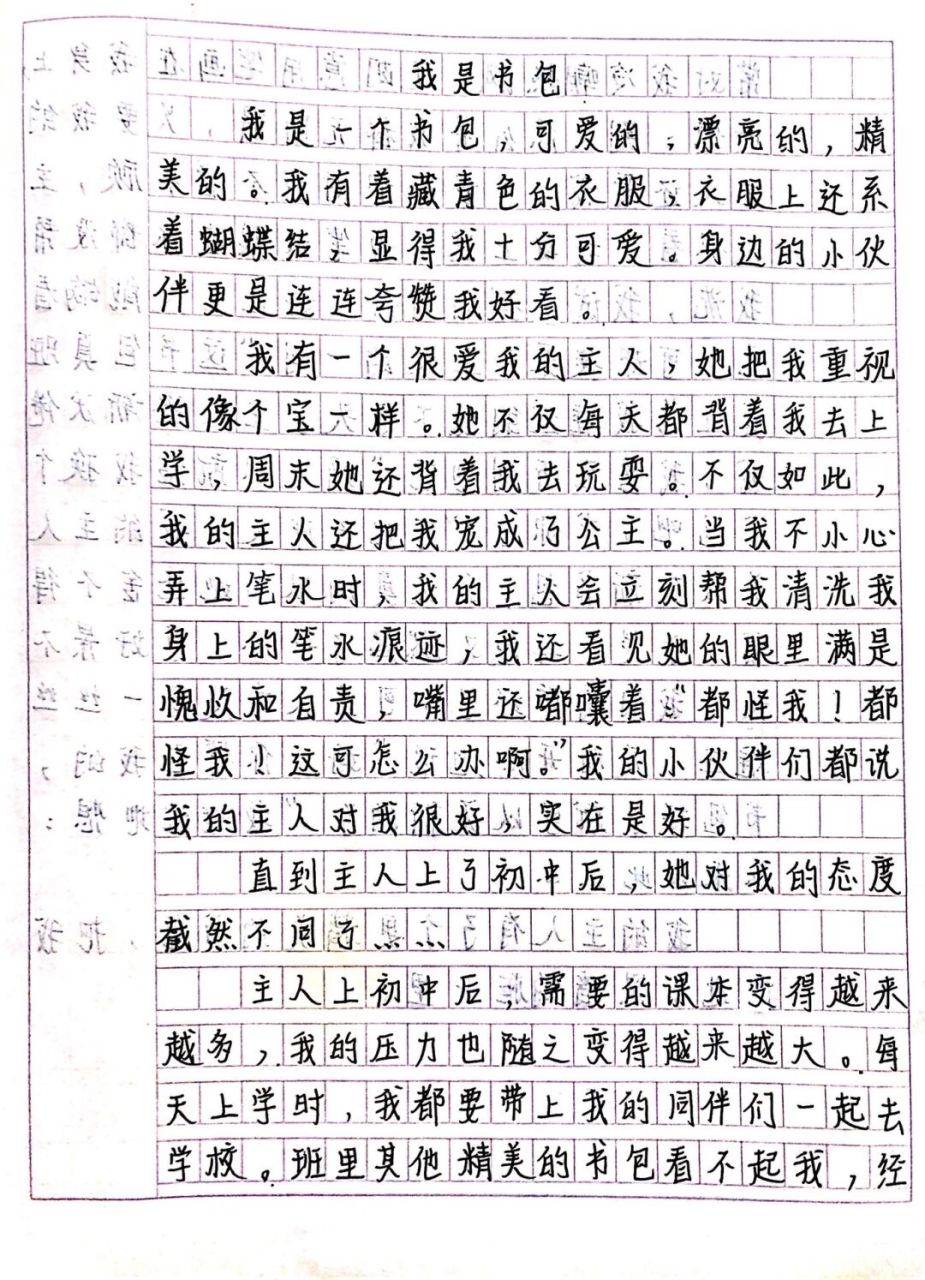 我是书包
我是一个书包，可爱的，漂亮的，精
美的。我有着藏青色的衣服，衣服上还系
着蝴蝶结，显得我十分可爱。身边的小伙
伴更是连连夸赞我好看。
我有一个很爱我的主人，她把我重视
的像个宝一样。她不仅每天都背着我去上
学，周末她还背着我去玩耍。不仅如此，
我的主人还把我宠成了公主。当我不小心
弄上笔水时，我的主人会立刻帮我清洗我
身上的笔水痕迹，我还看见她的眼里满是
愧疚和自责，嘴里还嘟囔着“都怪我！都
怪我！这可怎么办啊。”我的小伙伴们都说
我的主人对我很好，实在是好。
直到主人上了初中后，她对我的态度
截然不同了……
主人上初中后，需要的课本变得越来
越多，我的压力也随之变得越来越大。每
天上学时，我都要带上我的同伴们一起去
学校。班里其他精美的书包看不起我，经